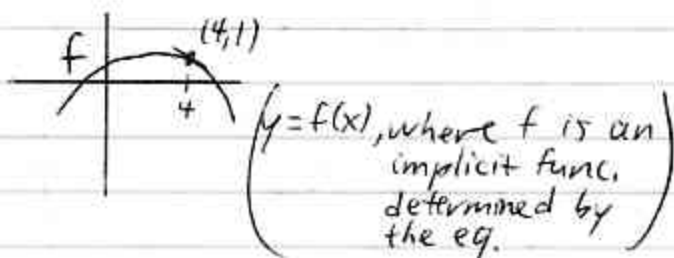 f
(4,1)
4
y=f(x), where f is an
implicit func.
determined by
the eq.